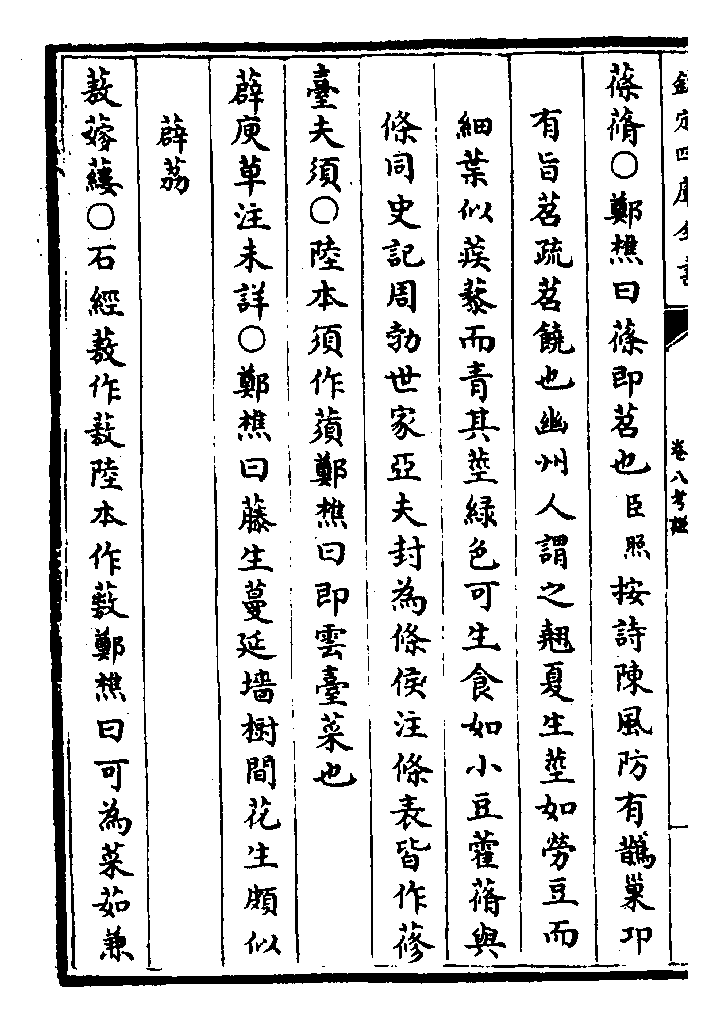 欽定四庫全書
卷八考證
蓨蓨○鄭樵曰蓧即苕也臣照按詩陳風防有鵲巢邛
有旨苕疏苕饒也幽州人謂之翹夏生莖如勞豆而
細葉似蒺藜而青其莖綠色可生食如小豆藿蓨與
條同史記周勃世家亞夫封為條侯注條表皆作蓨
臺夫須○陸本須作蕦鄭樵曰即雲臺菜也
薜庾草注未詳○鄭樵曰藤生蔓延墻樹間花生頗似
薜荔
蔜䕅䕞○石經蔜作䓹陸本作藙鄭樵曰可為菜茹兼